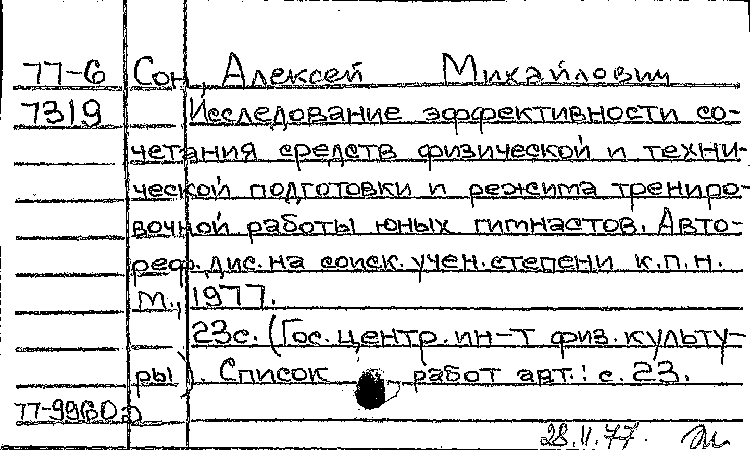 77-6 Сон, Алексей Михайлович
7319 Исследование эффективности со-
четания средств физической и техни-
ческой подготовки и режима трениро-
вочной работы юных гимнастов. Авто-
реф. дис. на соиск. учен. степени к.п.н.
М., 1977.
23с. (Гос. центр. ин-т физ. культу-
ры). Список работ авт.: с. 23.
28.11.77.